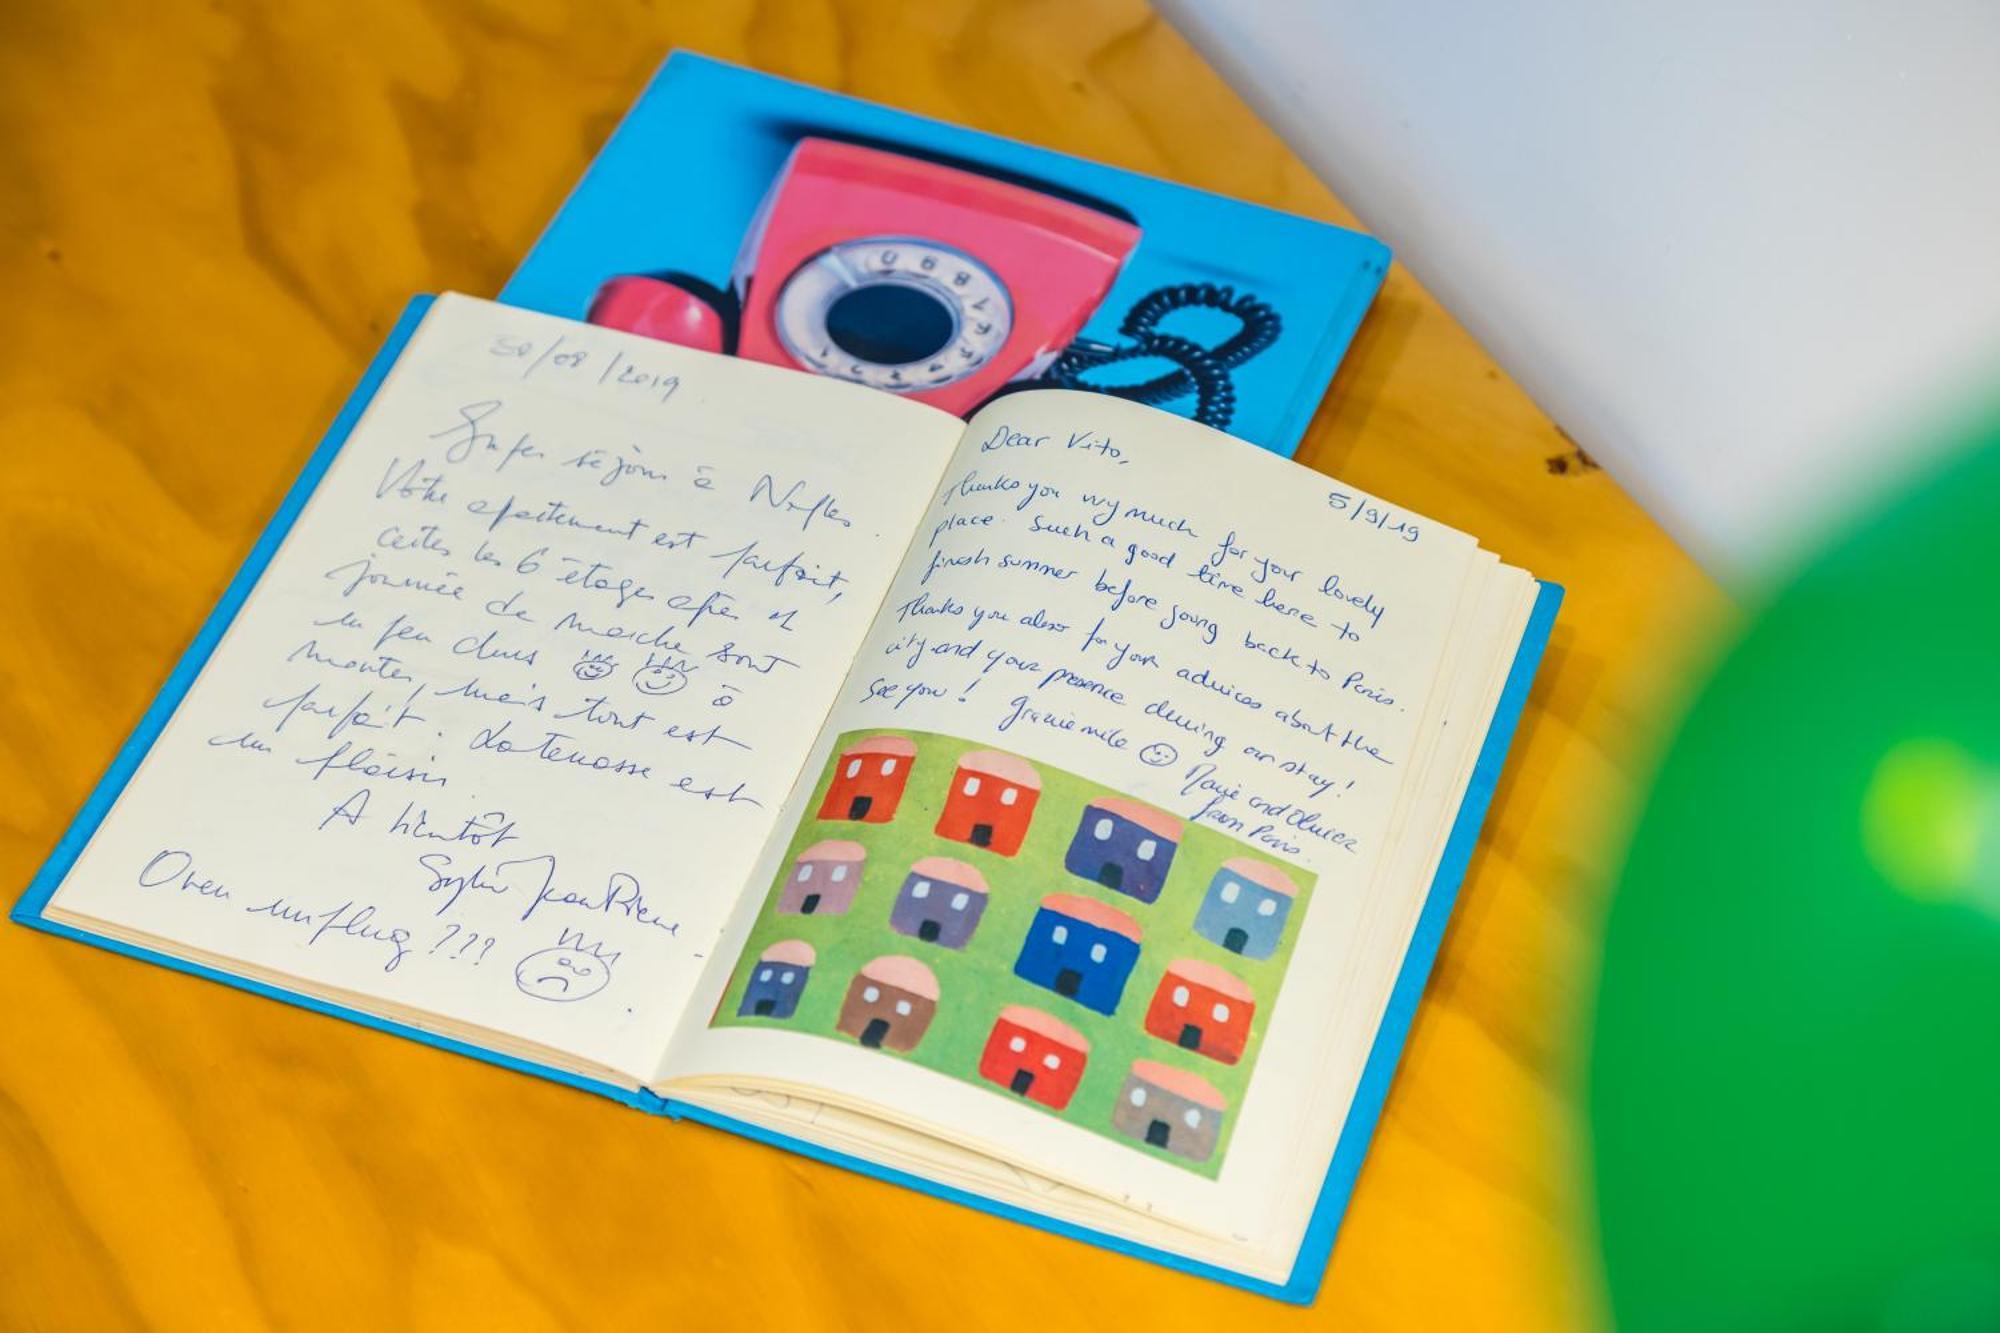 30/08/2019
Super séjour à Naples.
Votre apartement est parfait,
certes les 6 étages après
journée de marche sont
un peu durs à
monter, mais tout est
parfait. La terrasse est
un plaisir.
A bientôt
Sylvie Jean Pierre
Oven unplug ???
Dear Vito,
5/9/19
Thanks you very much for your lovely
place. Such a good time here to
finish summer before going back to Paris.
Thanks you also for your advices about the
city and your presence during our stay!
See you! Grazie mile
Marie and Olivier
from Paris.
0 9 8 7